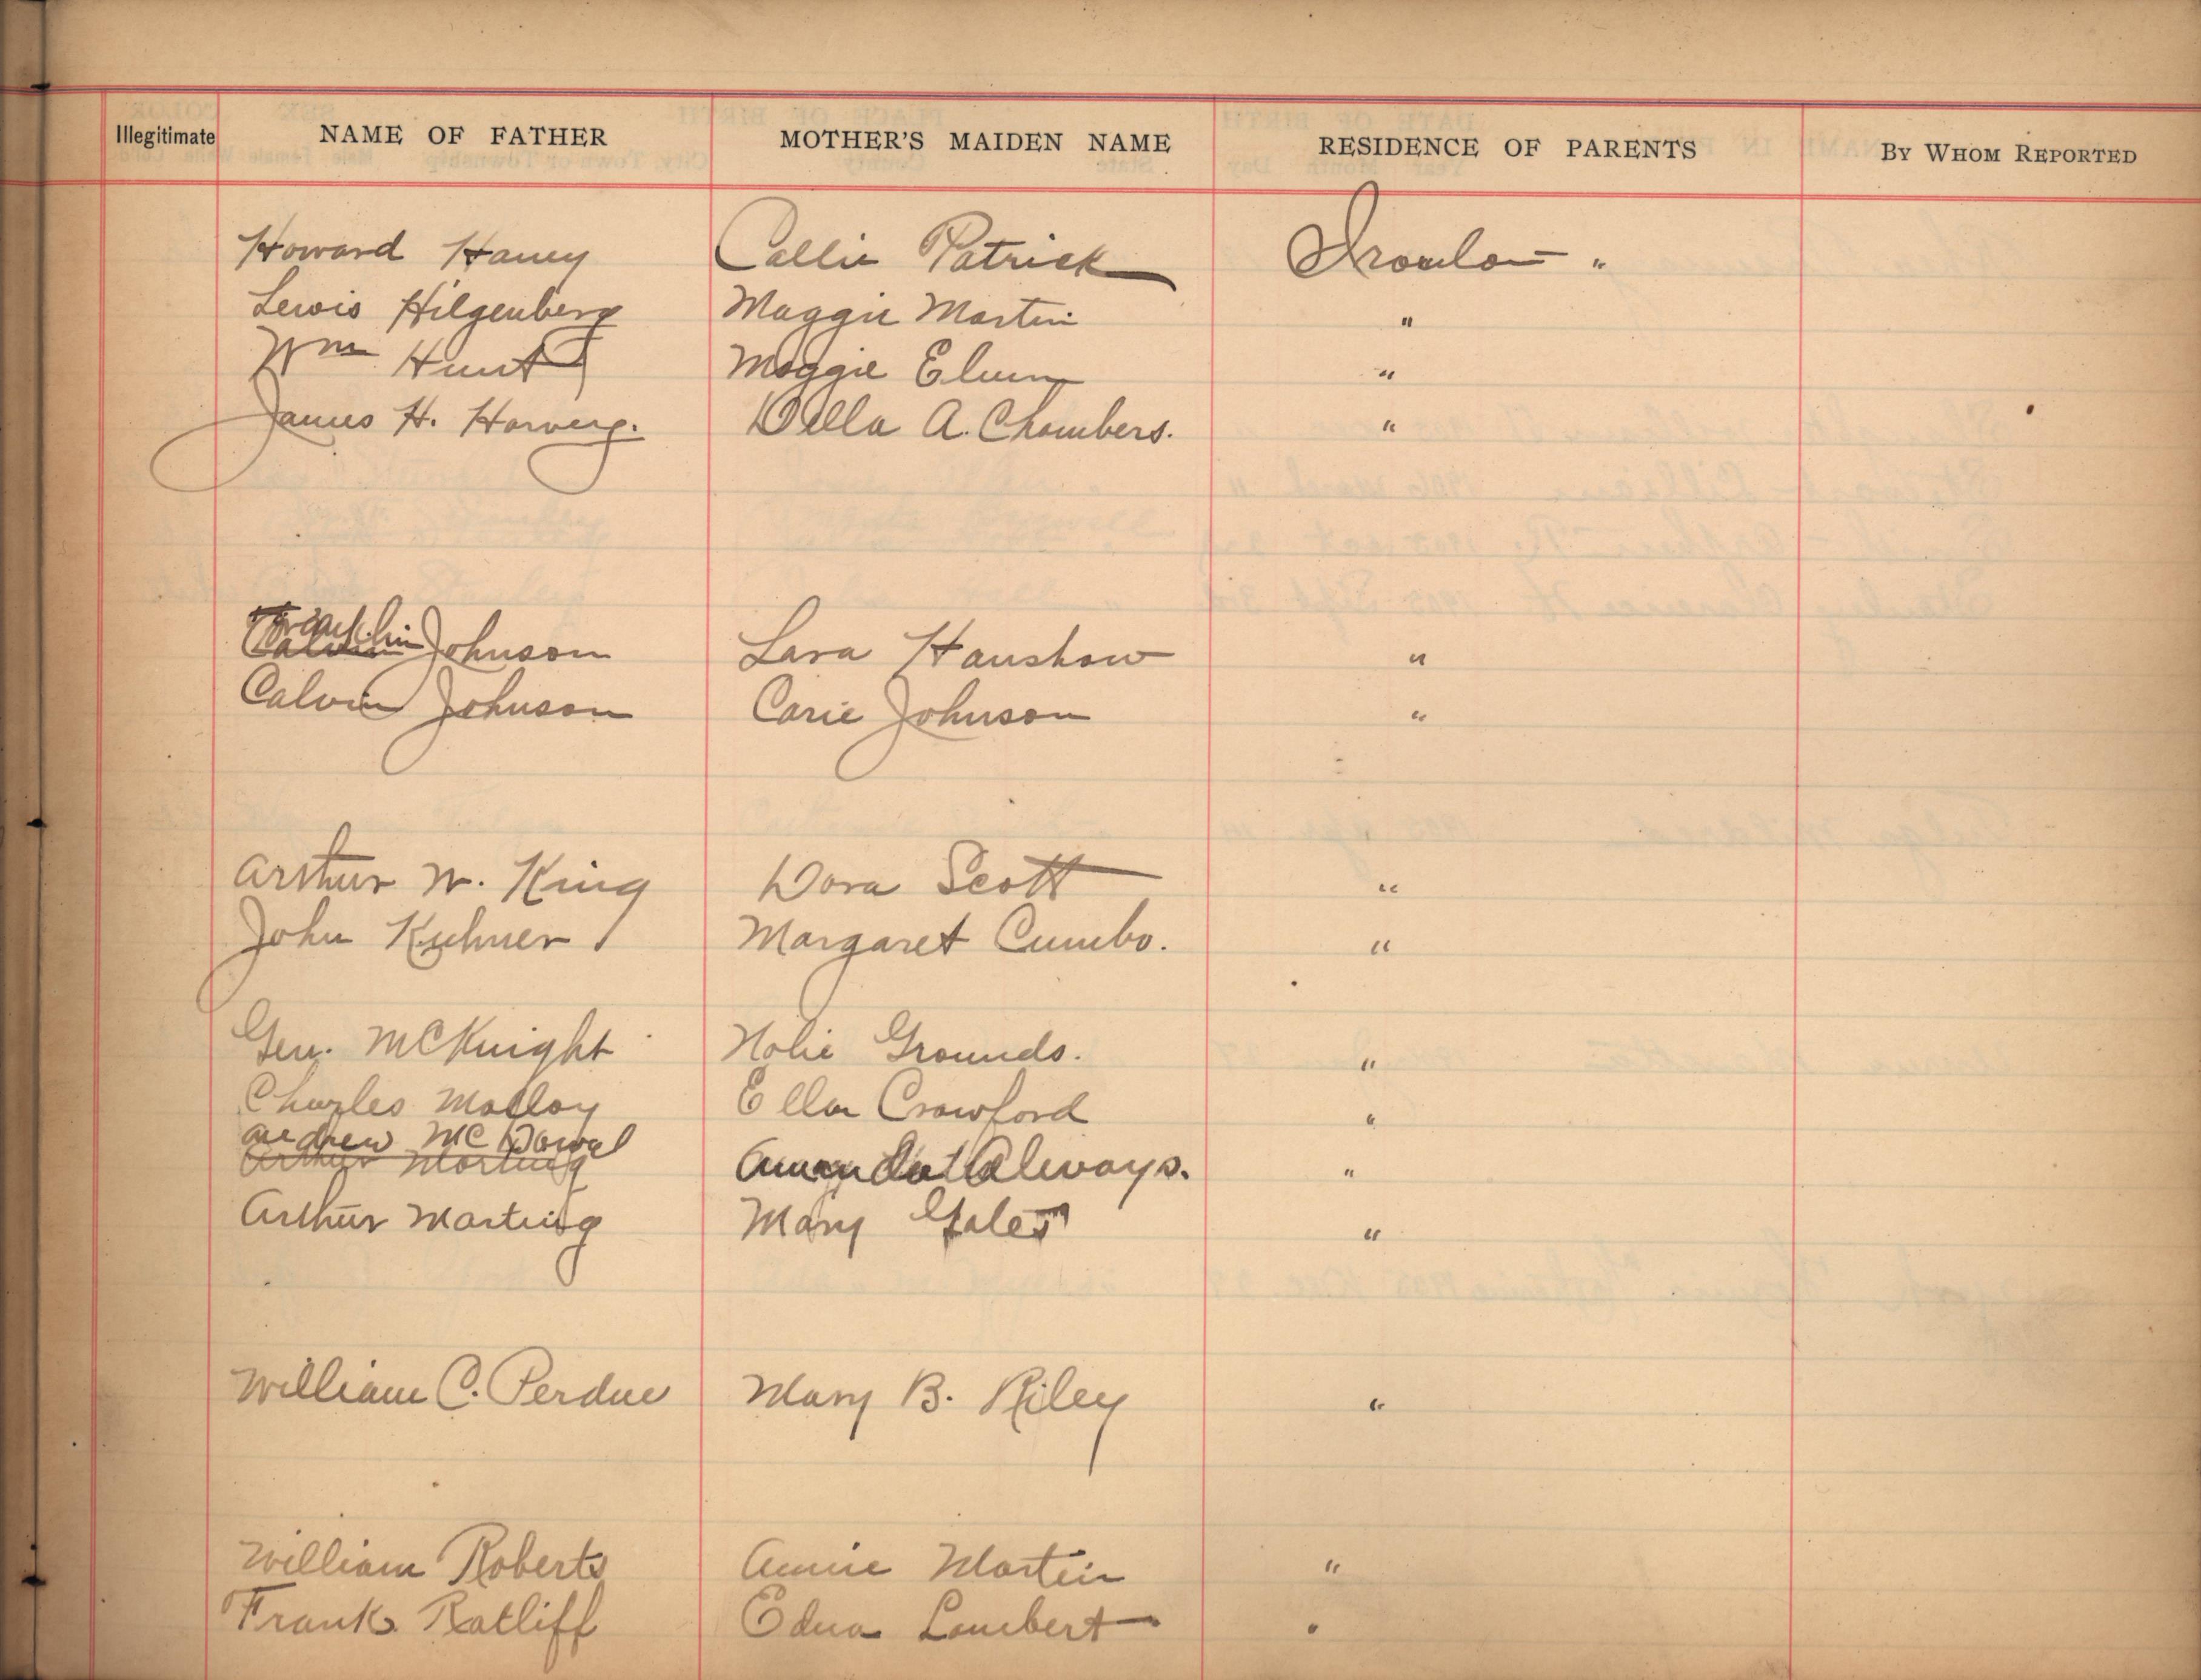 Illegitimate NAME OF FATHER MOTHER'S MAIDEN NAME RESIDENCE OF PARENTS BY WHOM REPORTED
Howard Haney Callie Patrick Ironton "
Lewis Hilgenberg Maggie Martin "
Wm Hunt Maggie Elum "
James H. Harvey. Della A. Chambers. "
Franklin
Calvin Johnson Lara Hanshaw "
Calvin Johnson Carie Johnson "
Arthur W. King Dora Scott "
John Kuhner Margaret Cumbo. "
Geo. McKnight Nolie Grounds. "
Charles Molloy Ella Crawford "
Andrew McDowal
Arthur Marting Amanda Always. "
Arthur Marting Mary Yates "
William C. Perdue Mary B. Riley "
William Roberts Annie Martin "
Frank Ratliff Edna Lambert "